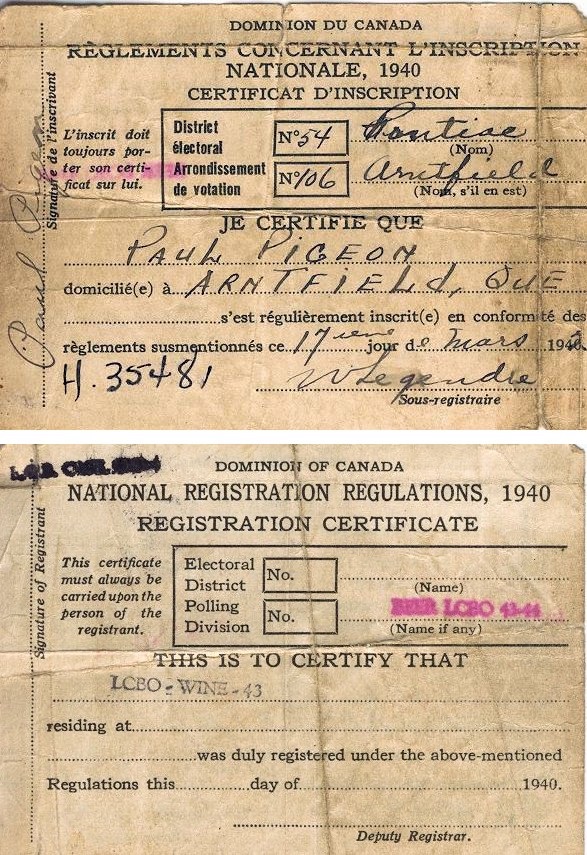 DOMINION DU CANADA
RÈGLEMENTS CONCERNANT L'INSCRIPTION
NATIONALE, 1940
CERTIFICAT D'INSCRIPTION
Signature de l'inscrivant
Paul Pigeon
L'inscrit doit
toujours por-
ter son certi-
ficat sur lui.
District
électoral
No 54
Pontiac
(Nom)
Arrondissement
de votation
No 106
Arntfield
(Nom, s'il en est)
JE CERTIFIE QUE
PAUL PIGEON
domicilié(e) à ARNTFIELD, QUE
s'est régulièrement inscrit(e) en conformité des
règlements susmentionnés ce 17 ième jour de Mars 194
H. 35481
W Legendre
Sous-registraire
DOMINION OF CANADA
NATIONAL REGISTRATION REGULATIONS, 1940
REGISTRATION CERTIFICATE
Signature of Registrant
This certificate
must always be
carried upon the
person of the
registrant.
Electoral
District
No.
(Name)
Polling
Division
No.
BEER LCBO 43-44
(Name if any)
THIS IS TO CERTIFY THAT
LCBO-WINE-43
residing at
was duly registered under the above-mentioned
Regulations this day of 1940.
Deputy Registrar.